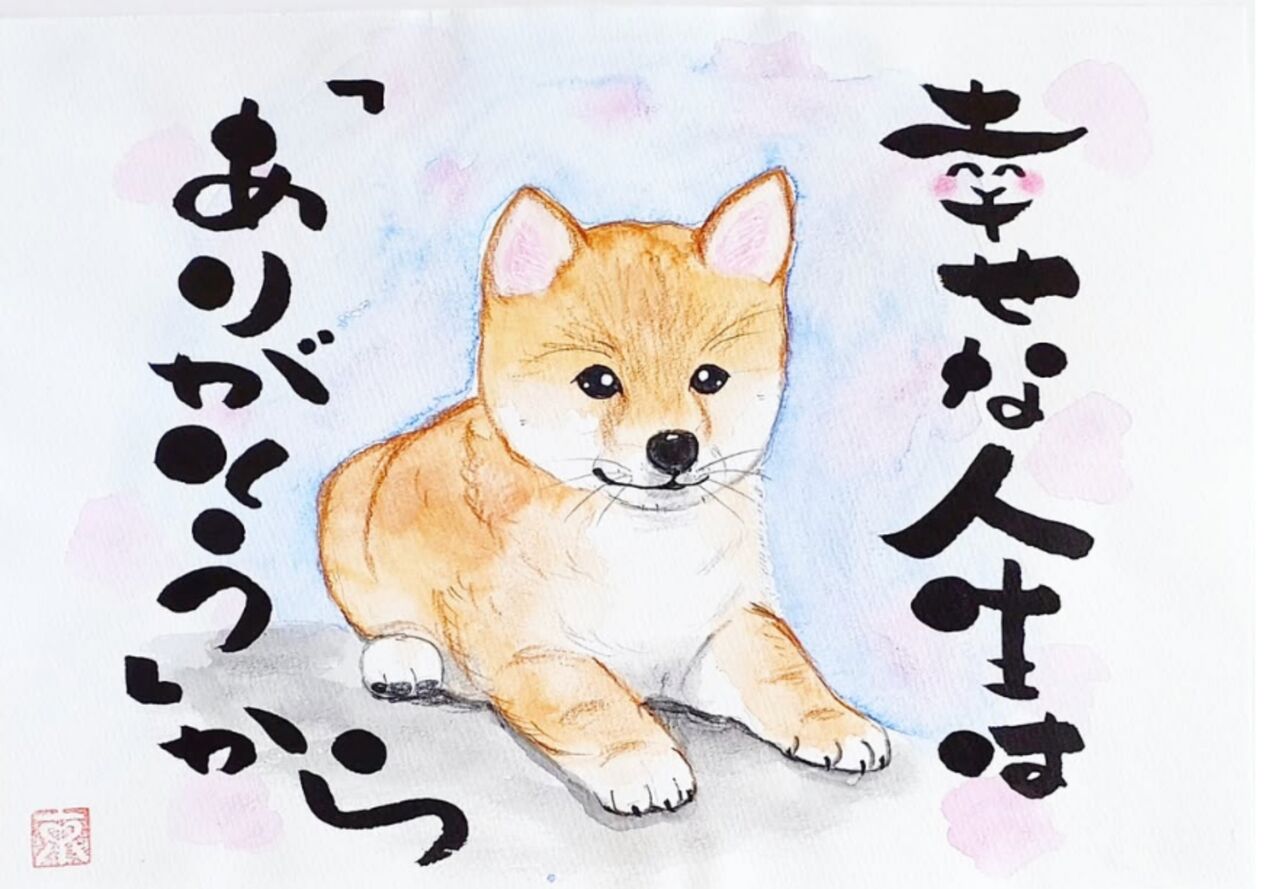 幸せな人生は
「ありがとう」から